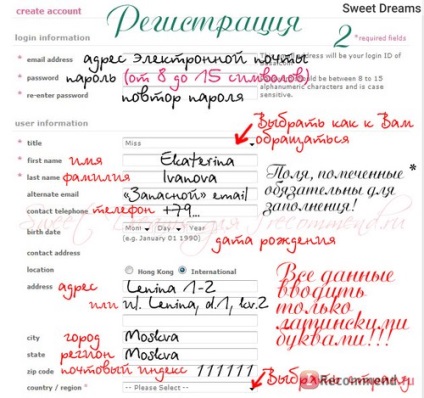 Sweet Dreams
create account
Регистрация
2
* required fields
login information
* email address адрес электронной почты
address will be your login ID of
* password пароль (от 8 до 15 символов)
should be between 8 to 15
alphanumeric characters and is case
sensitive.
* re-enter password повтор пароля
user information
Выбрать как к Вам
обращаться
* title Miss
* first name имя Ekaterina
* last name фамилия Ivanova
Поля, помеченные *
обязательны для
заполнения!
alternate email «Запасной» email
contact telephone телефон +79...
Sweet Dreams для irecommend.ru
birth date Mon Day Year
(e.g. January 01 1990) дата рождения
contact address
location Hong Kong International
Все данные
вводить
только
латинскими
буквами!!!
address адрес Lenina 1-2
или ul. Lenina, d.1, kv.2
city город Moskva
state регион Moskva
zip code почтовый индекс 111111
country / region * -- Please Select -- Выбрать страну
iRecommend.ru